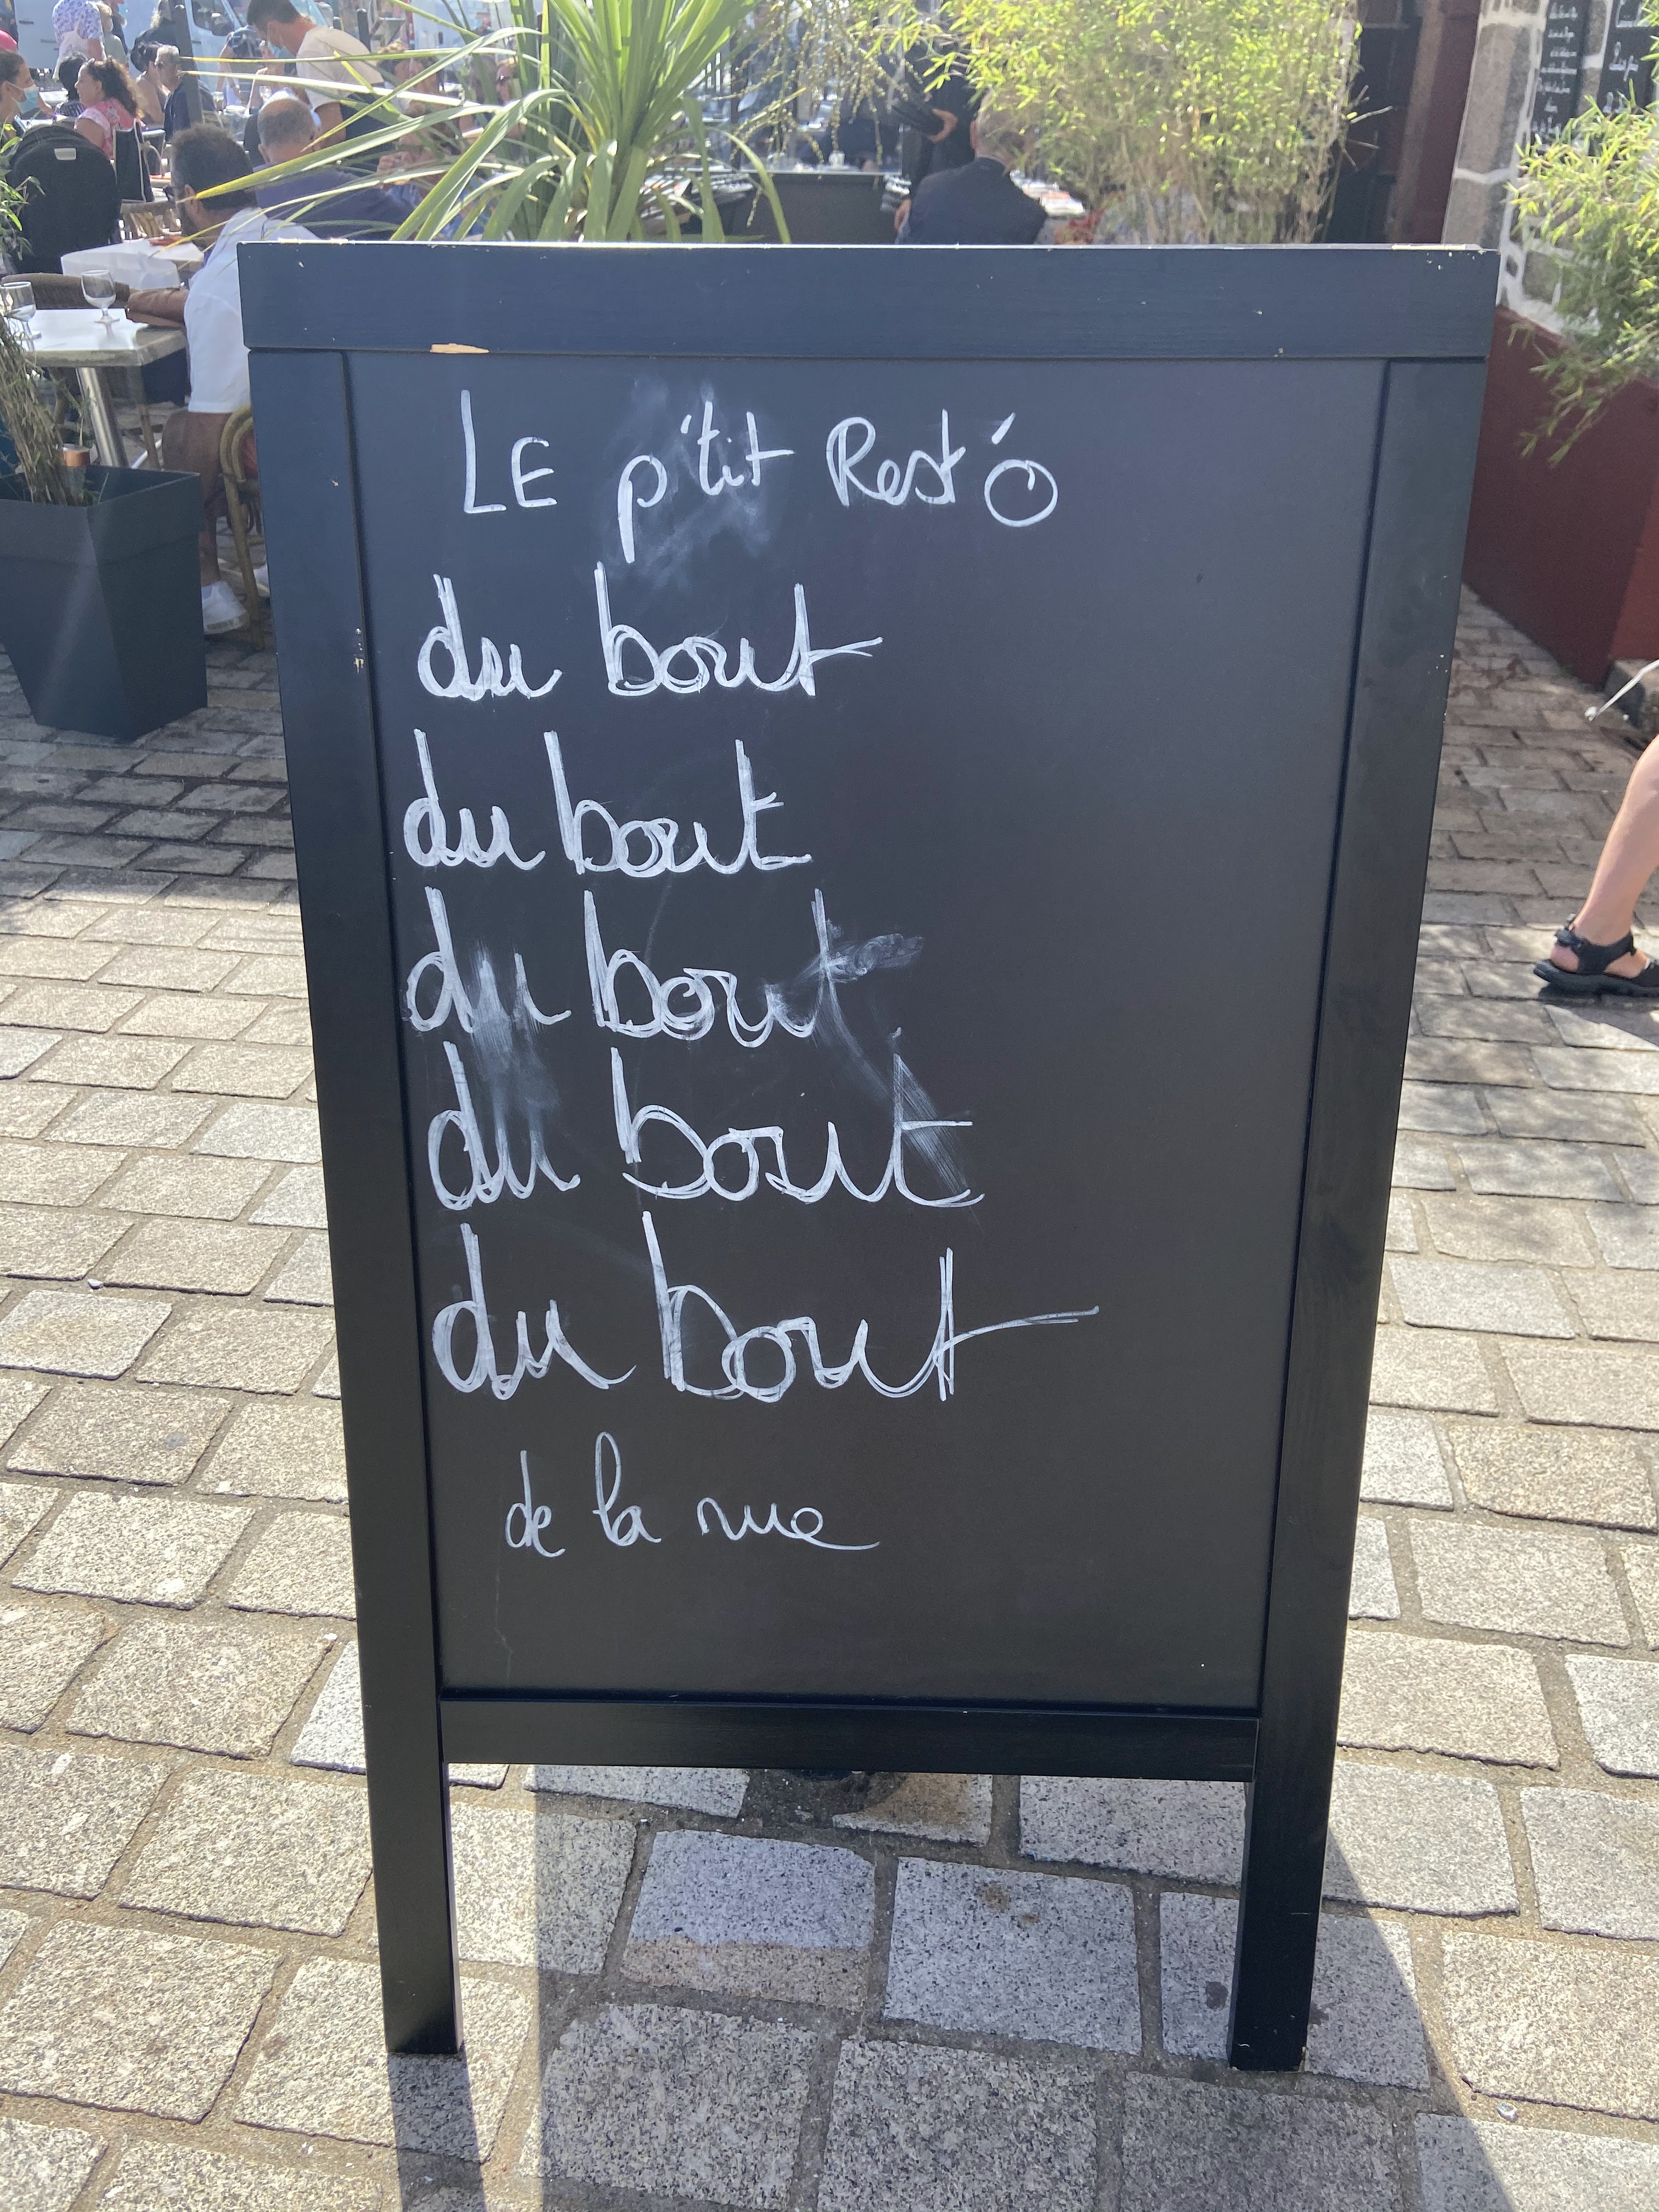 LE p'tit Rest'Ó
du bout
du bout
du bout
du bout
du bout
de la rue